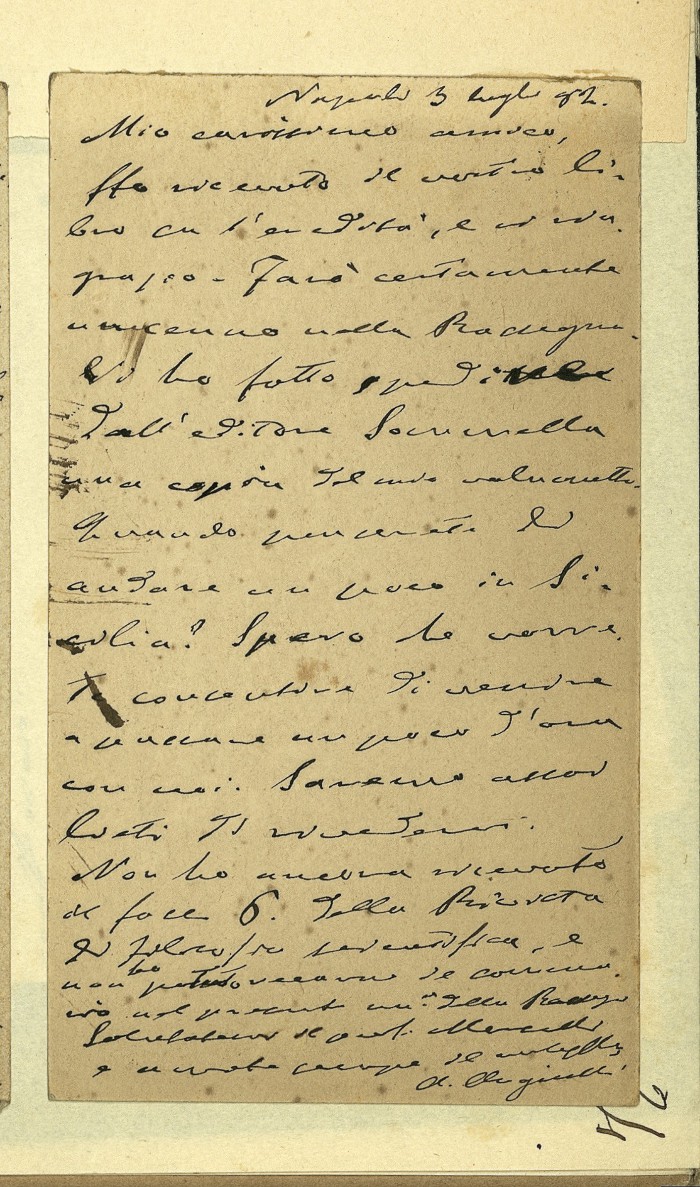 Napoli 3 luglio 82.
Mio carissimo amico,
Ho ricevuto il vostro li-
bro su l'eredità, e vi rin-
grazio - Farò certamente
un cenno nella Rassegna.
Vi ho fatto spedire
dall'editore Sommella
una copia del mio volumetto.
Quando penserete di
andare un poco in Si-
cilia? Spero che vorre-
te consentire di venire
a passare un poco d'ora
con noi. Saremo assai
lieti di rivedervi.
Non ho ancora ricevuto
il fasc. 6. della Rivista
di filosofia scientifica, e
non ho potuto recarne il somma-
rio nel present nu.º della Rassegna
Salutatemi il prof. Morselli
e amate sempre il
A. Angiulli
76